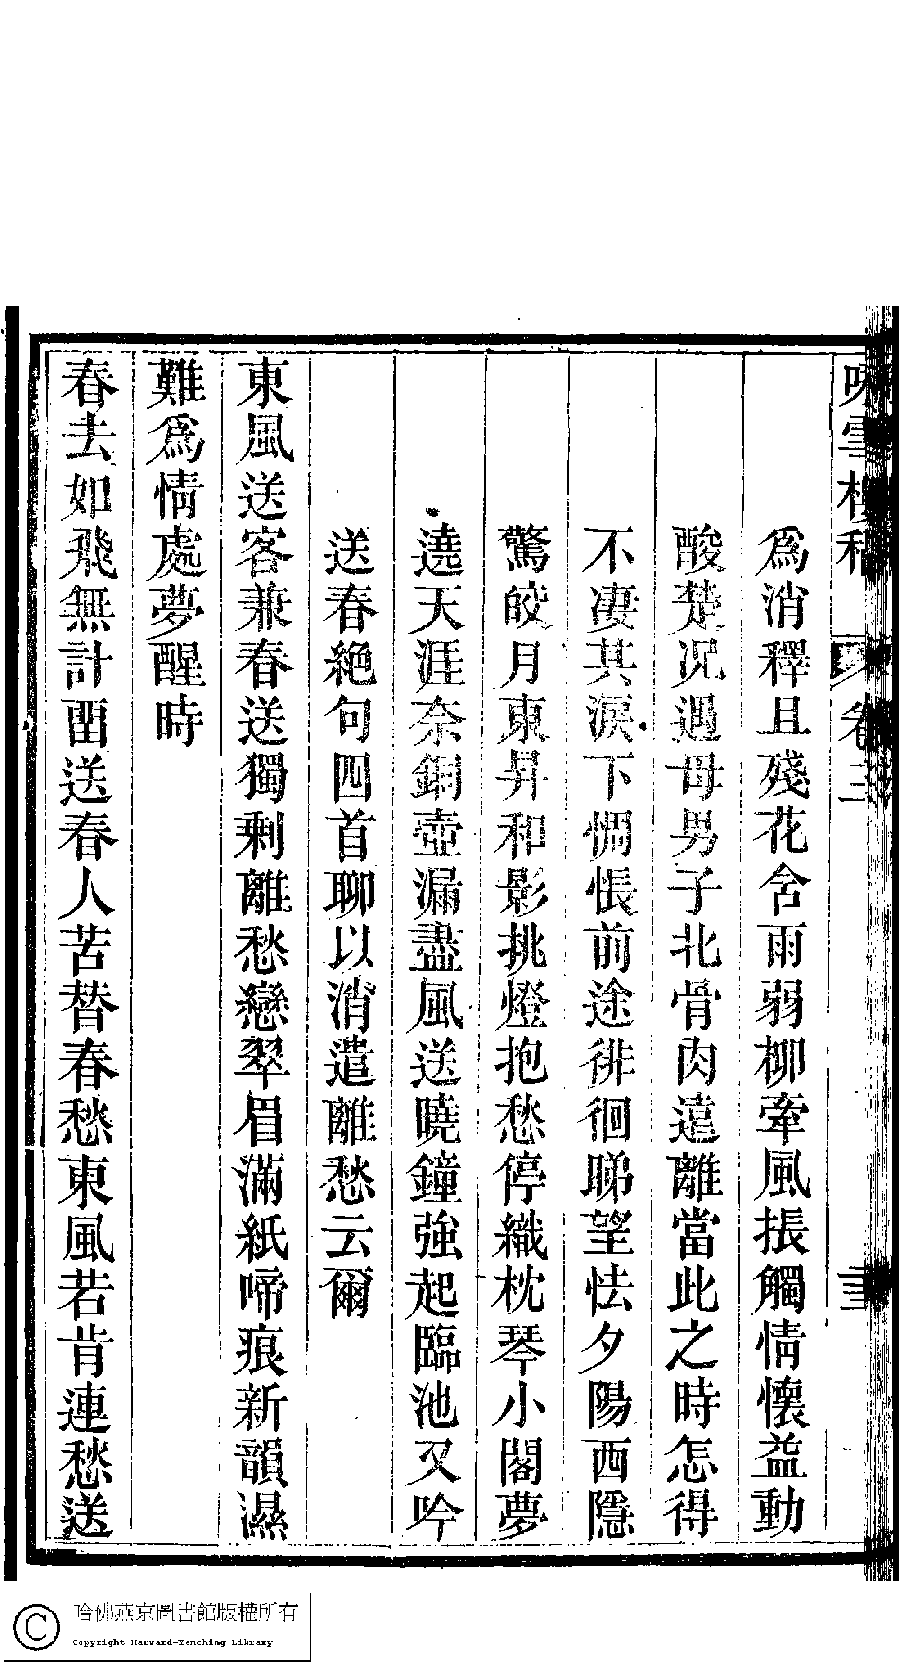 雪樓稿 卷二
為消釋且殘花含雨弱柳牽風振觸情懷益動
酸楚况遇母男子北骨肉遠離當此之時怎得
不凄其淚下惆悵前途徘徊睇望怯夕陽西隱
驚皎月東昇和影挑燈抱愁停織枕琴小閣夢
遶天涯奈銅壺漏盡風送曉鐘強起臨池又吟
送春絶句四首聊以消遣離愁云爾
東風送客兼春送獨剩離愁戀翠眉滿紙啼痕新韻濕
難為情處夢醒時
春去如飛無計畱送春人苦替春愁東風若肯連愁送
哈佛燕京圖書館版權所有
Copyright Harvard-Yenching Library